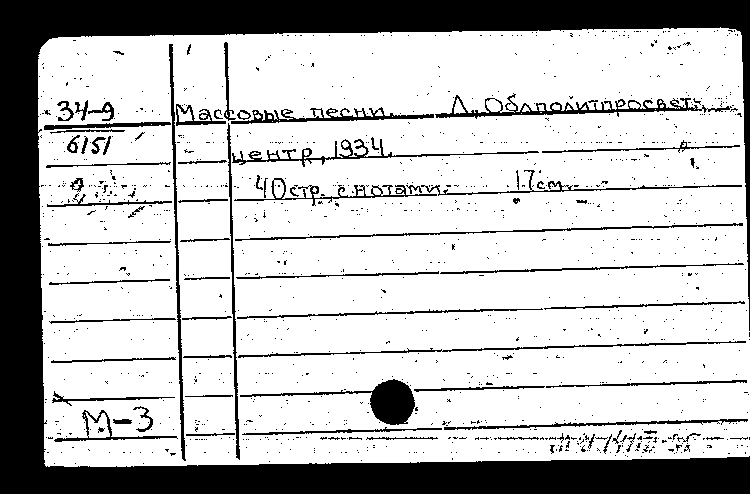 34-9 Массовые песни. Л., Облполитпросвет-
6151 центр, 1934.
40 стр. с нотами. 17 см.
М-3